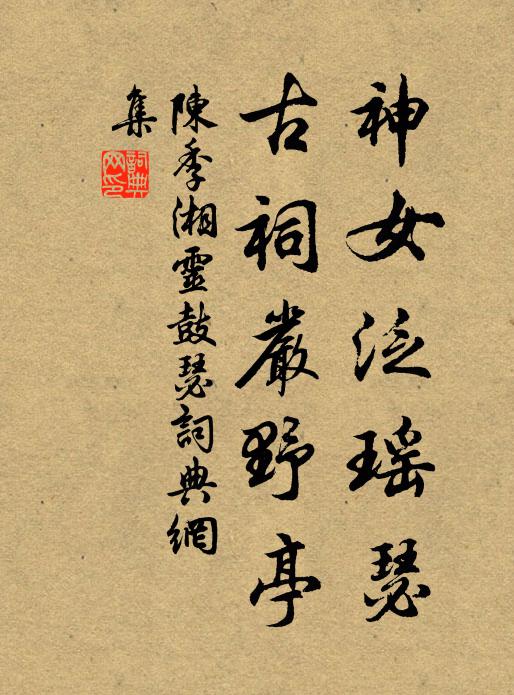 神女泛瑶瑟
古祠嚴野亭
陳季湘靈鼓瑟詞典網
集
詞典
网印